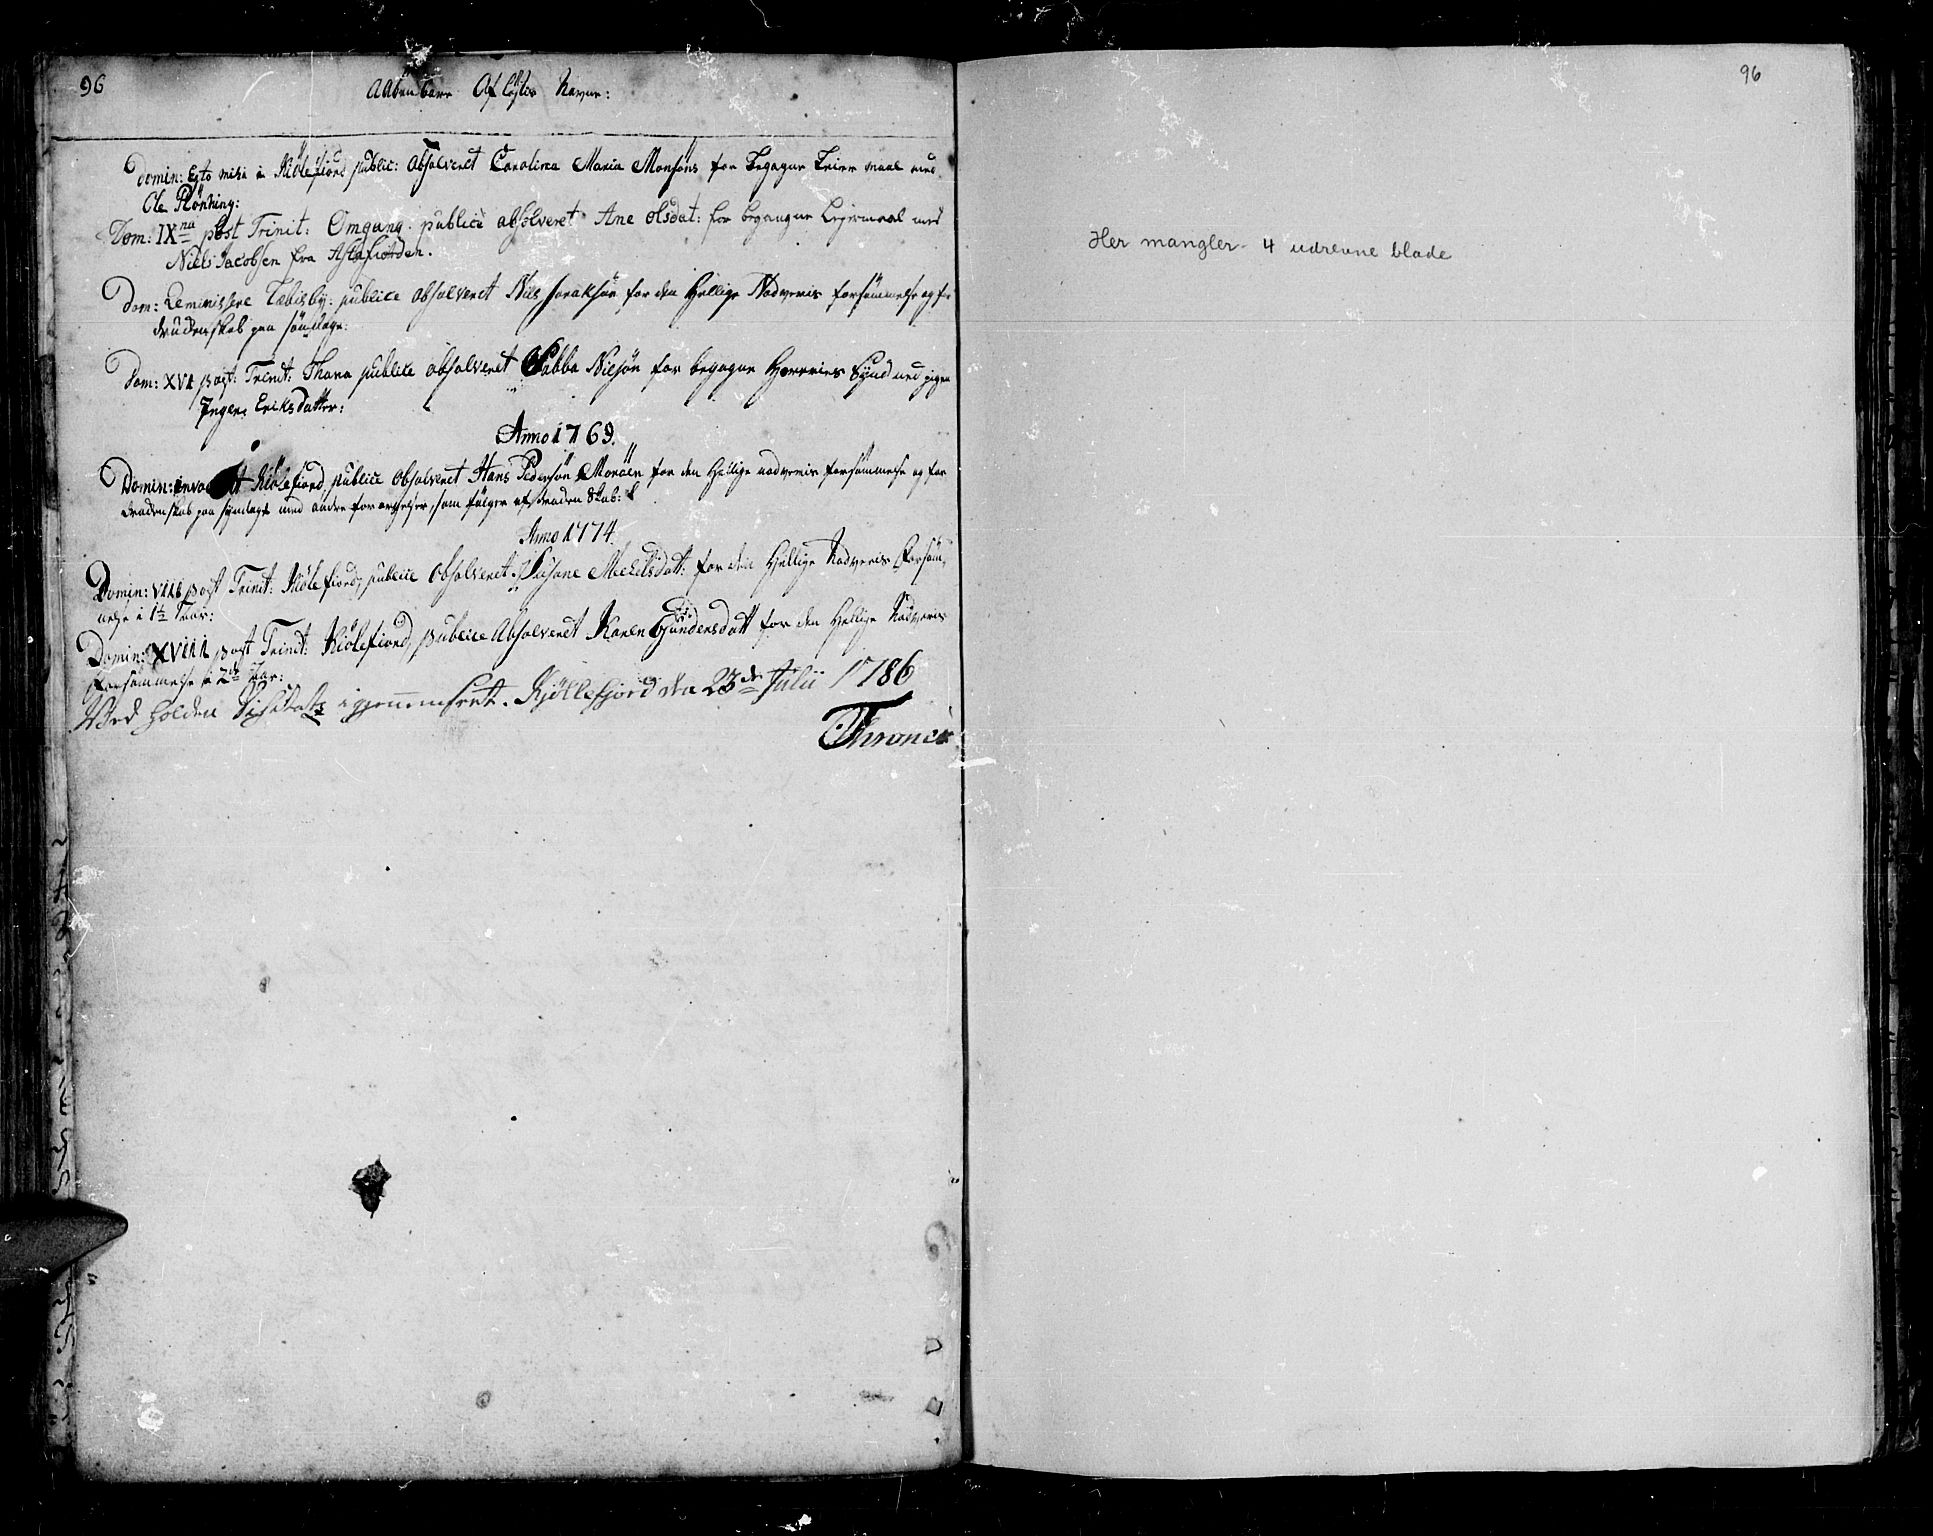 96
Aabenbare Afløstes Navne:
Domin: Esto mihi i Kiölefiord public: absolveret Carolina Maria Monsöns for begagne Leiermaal med
Ole Rönning:
Dom: IX na post Trinit: Omgang. publicè absolveret Ane Olsdat: for begangne Lejermaal med
Niels Jacobsen fra
Dom: Reminissere Tæbisby: publice absolveret Nils Isaksön for den Hellige Nadveris forsömmelse og for
druckenskab paa söndage:
Dom: XVI post: Trinit: Thana publice absolveret Sabba Nilsön for begagne Horeries Synd med pigen
Inger Eriksdatter:
Anno 1769.
Domin: Kiölefiord publice absolveret Hans Pedersön for den Hellige nadveris forsömmelse og for
druckenskab paa syndage med andre forargelser, som fölger af druckenskab:
Anno 1774.
Domin: VIII post Trinit: Kiölefiord, publice absolveret Susane Michelsdatt: for den Hellige Nadveris Forsöm-
melse i 1½ Aar:
Domin: XVIII post Trinit: Kiölefiord, publice Absolveret Karen Gundersdatt for den Hellige Nadveris
Forsömmelse i 2de Aar:
Ved holden Visitatz igjennemseet. Kjöllefjord den 23de Julii 1786
96
Her mangler 4 udrevne blade